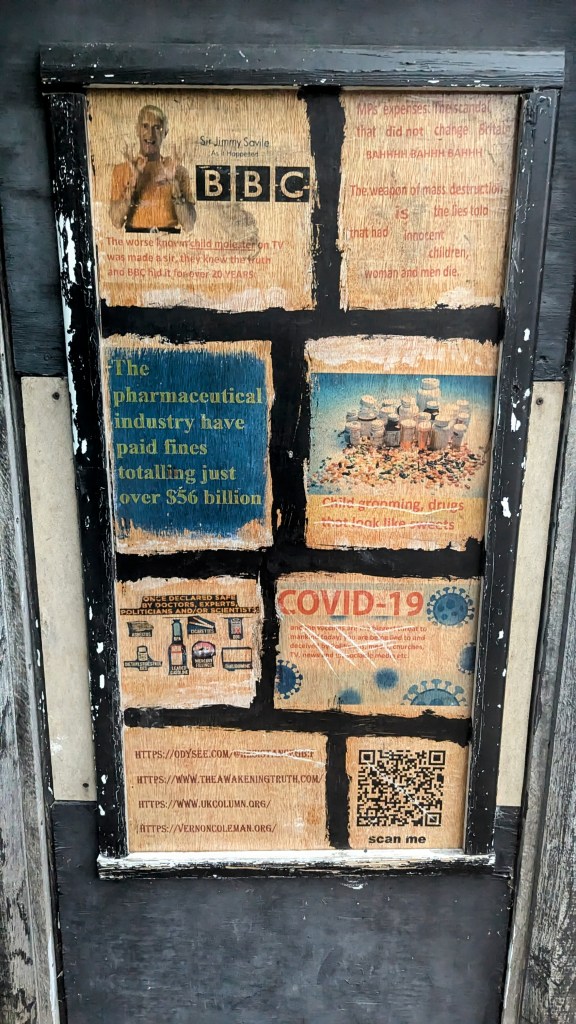 Sir Jimmy Savile
As it Happened
BBC
The worse known child molester on TV
was made a sir, they knew the truth
and BBC hid it for over 20 YEARS.
MPs' expenses: The scandal
that did not change Britai
BAHHHH BAHHH BAHHH
The weapon of mass destruction
is the lies told
that had innocent
children,
woman and men die.
The
pharmaceutical
industry have
paid fines
totalling just
over $56 billion
Child grooming, drugs
that look like sweets
ONCE DECLARED SAFE
BY DOCTORS, EXPERTS,
POLITICIANS AND/OR SCIENTISTS
COVID-19
TV, news
HTTPS://ODYSEE.COM/
HTTPS://WWW.THEAWAKENINGTRUTH.COM/
HTTPS://WWW.UKCOLUMN.ORG/
HTTPS://VERNONCOLEMAN.ORG/
scan me